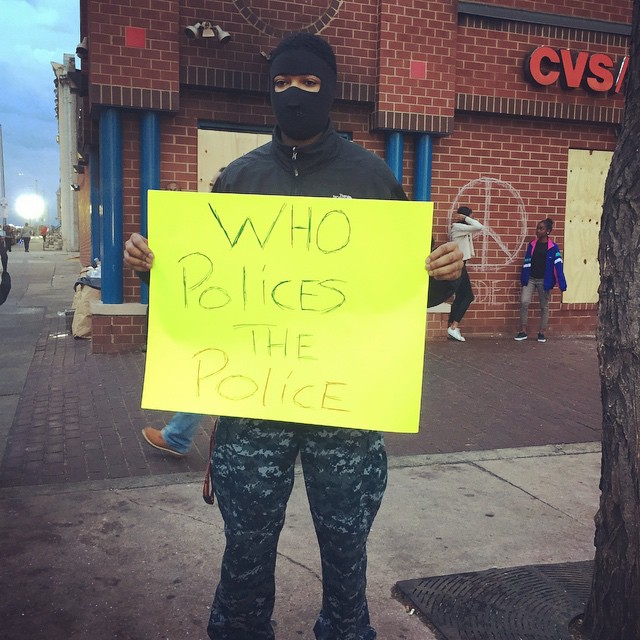 CVS/
WHO
POLICES
THE
POLICE